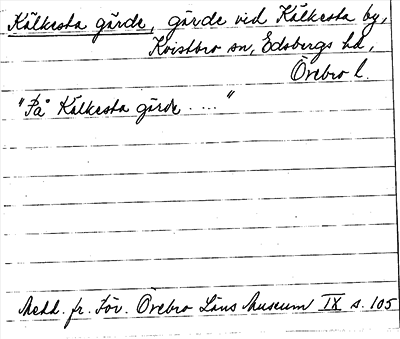 Kälkesta gärde, gärde vid Kälkesta by,
Kvistbro sn, Edsbergs hd,
Örebro l.
"På Kälkesta gärde . . . ."
Medd. fr. För. Örebro Läns Museum IX s. 105